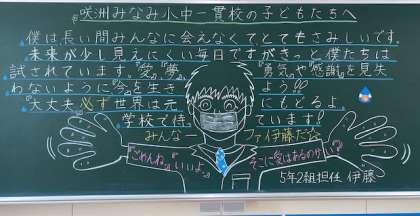 咲洲みなみ小中一貫校の子どもたちへ
僕は長い間みんなに会えなくてとてもさみしいです。
未来が少し見えにくい毎日ですがきっと僕たちは
試されています。『愛』『夢』『勇気』や『感謝』を見失
わないように『今』を生きよう!!
『大丈夫』必ず世界は元にもどるよ。
学校で待っています!
みんなファイ伊藤だ☆
『ごめんね。』『いいよ。』
そこに愛はあるのかい?
5年2組担任 伊藤